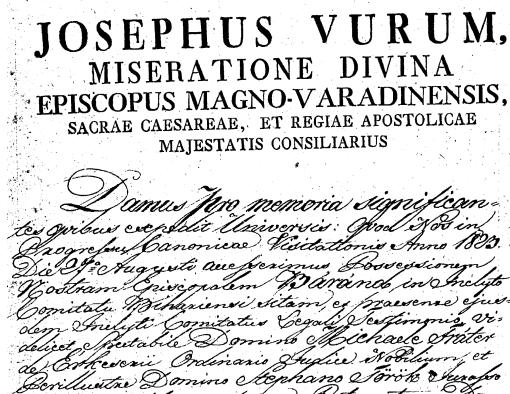 JOSEPHUS VURUM,
MISERATIONE DIVINA
EPISCOPUS MAGNO-VARADINENSIS,
SACRAE CAESAREAE, ET REGIAE APOSTOLICAE
MAJESTATIS CONSILIARIUS
Damus pro memoria significan-
tes quibus expedit Universis: Quod Nos in
Progressu Canonicae Visitationis Anno 1823.
Die Augusti accesserimus Possessionem
Nostram Episcopalem Váránd, in Inclyto
Comitatu Bihariensi sitam, et praesente ejus-
dem Inclyti Comitatus Legali Testimonio, vi-
delicet Spectabile Domino Michaele Fráter
de Érkeserü Ordinario Judice Nobilium, et
Perillustre Domino Stephano Török Jurasso